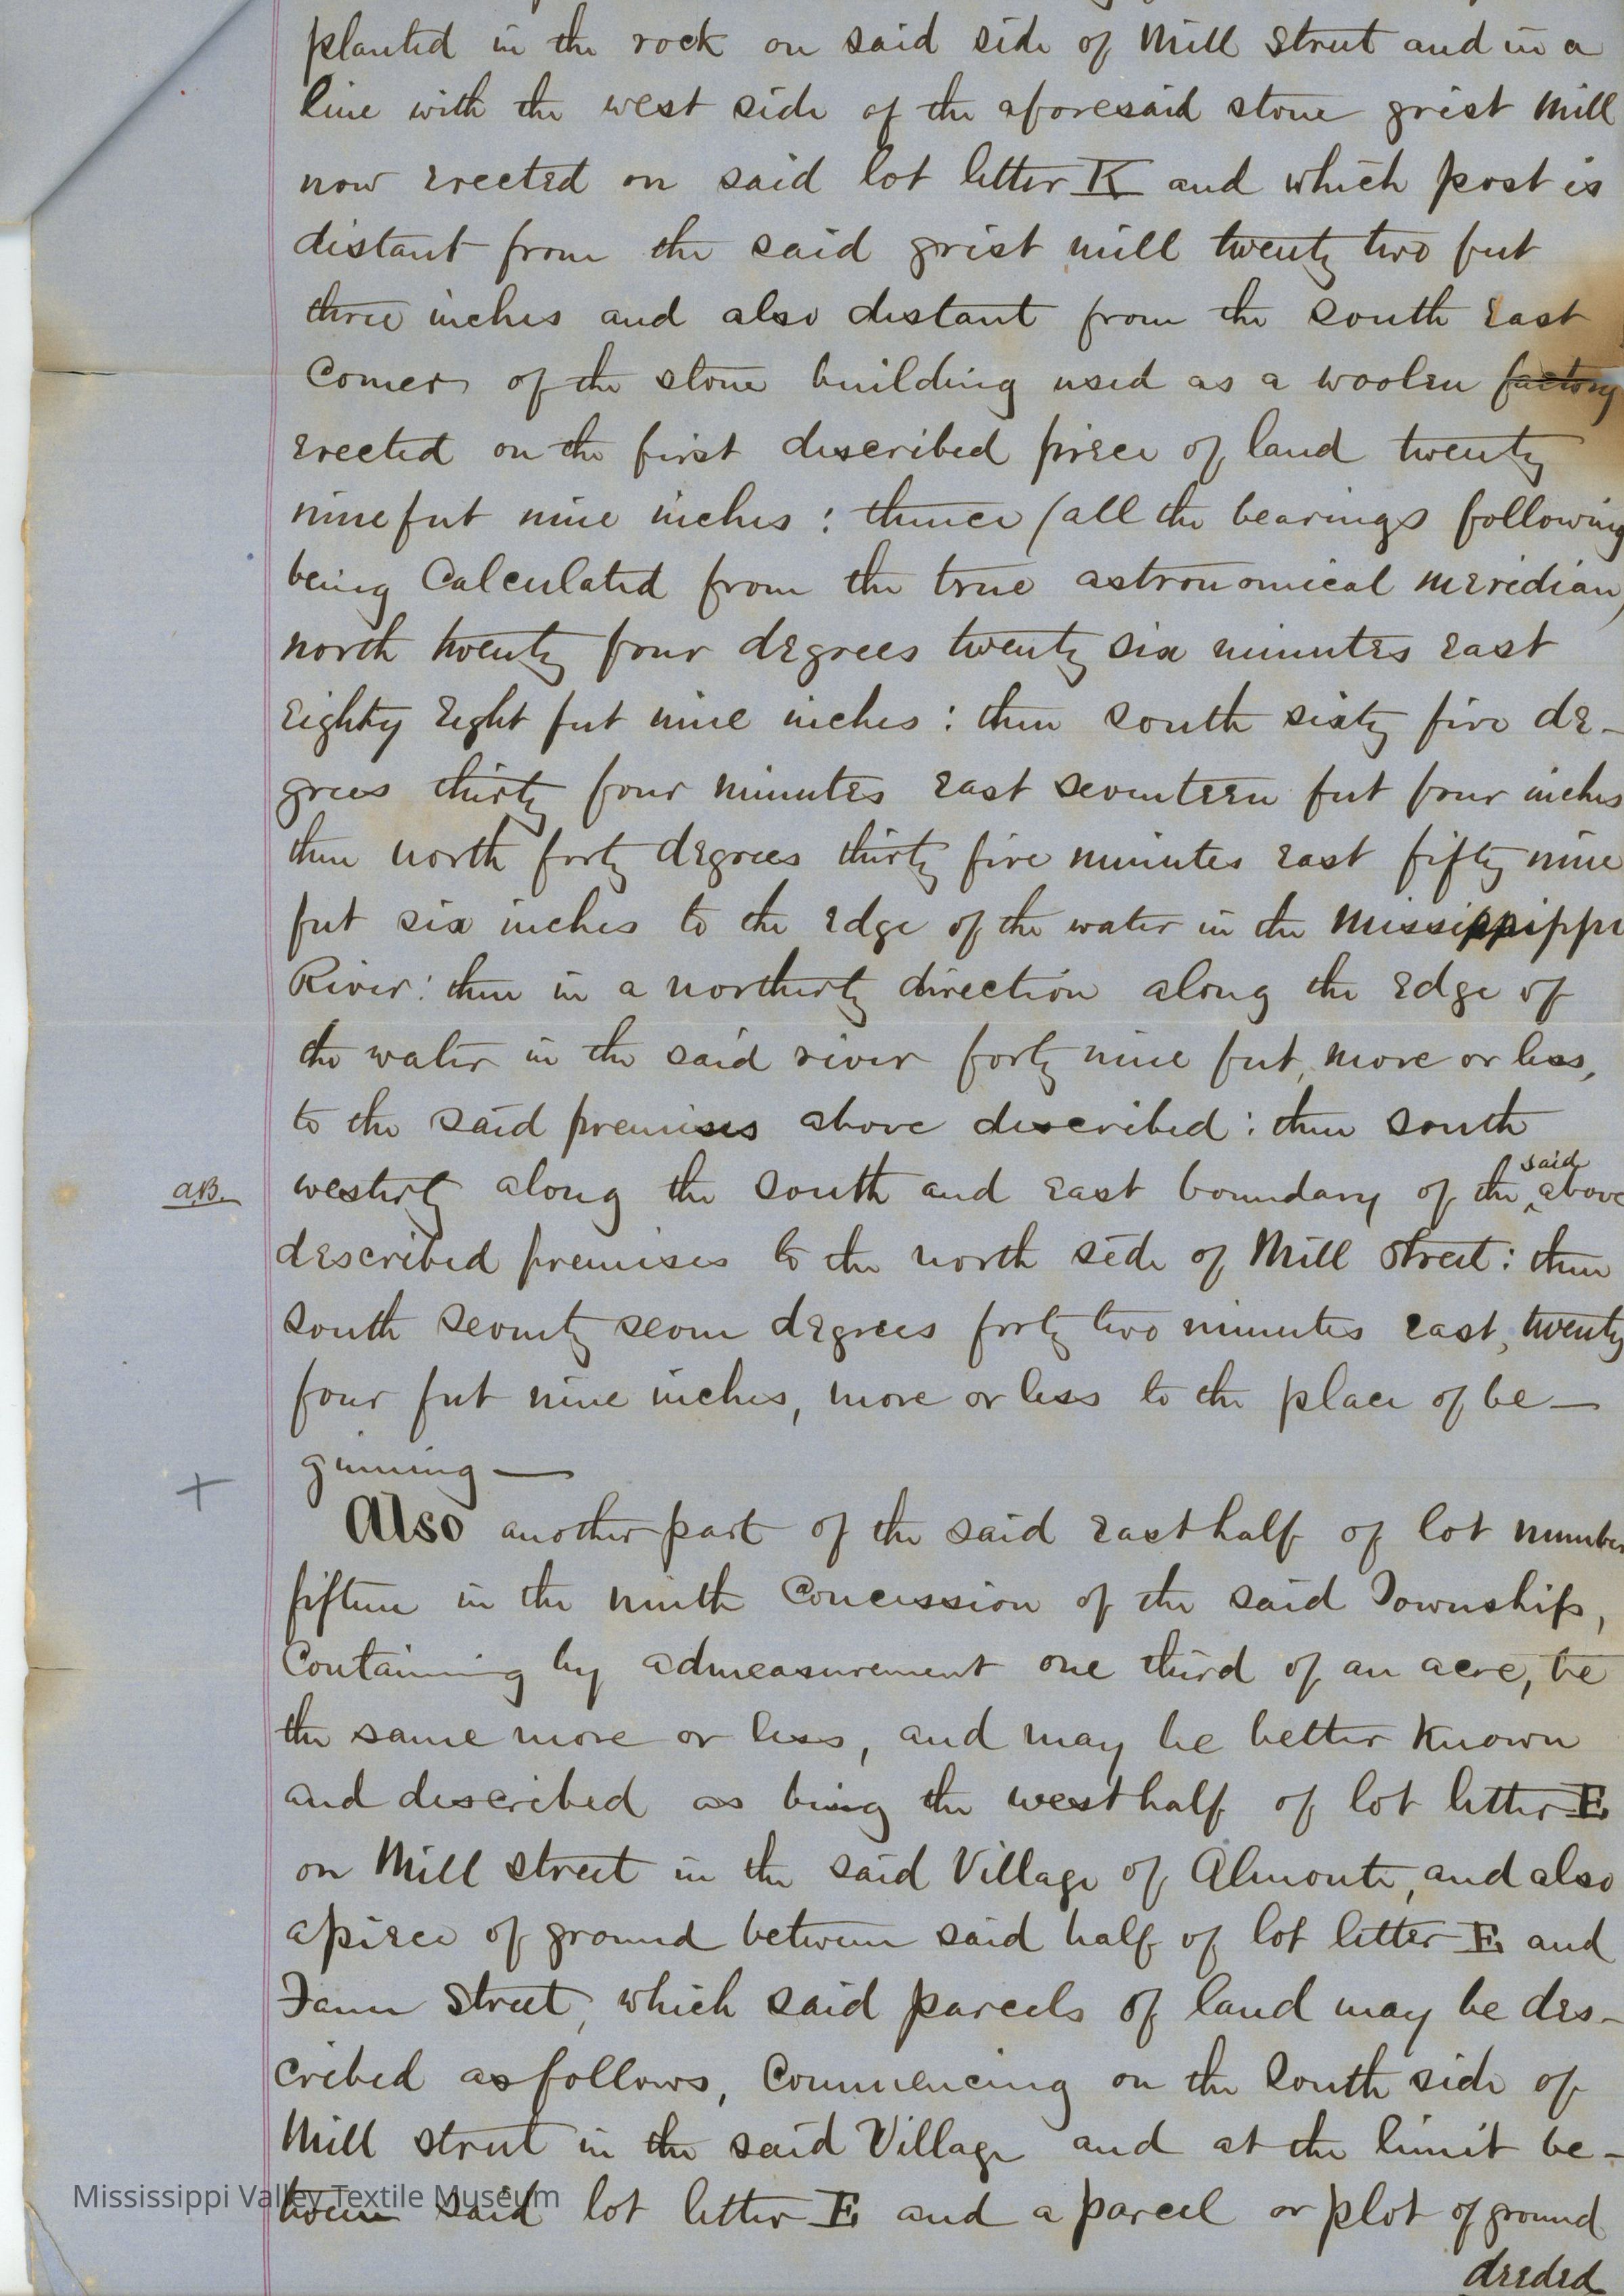 planted in the rock on said side of Mill Street and in a
line with the west side of the aforesaid stone grist Mill
now erected on said lot letter K and which post is
distant from the said grist mill twenty two feet
three inches and also distant from the South East
Corner of the stone building used as a woolen factory
erected on the first described piece of land twenty
nine feet nine inches : thence (all the bearings following
being Calculated from the true astronomical meridian)
north twenty four degrees twenty six minutes east
Eighty Eight feet nine inches : then South sixty five de-
grees thirty four minutes East seventeen feet four inches
then north forty degrees thirty five minutes east fifty nine
feet six inches to the Edge of the water in the Mississippi
River : then in a northerly direction along the Edge of
the water in the said river forty nine feet, more or less,
to the said premises above described : then South
a.B. westerly along the South and East boundary of the said above
described premises to the north side of Mill Street : then
South Seventy seven degrees forty two minutes east, twenty
four feet nine inches, more or less to the place of be-
ginning —
+
Also another part of the said East half of lot number
fifteen in the ninth Concession of the said Township,
Containing by admeasurement one third of an acre, be
the same more or less, and may be better known
and described as being the west half of lot letter E
on Mill Street in the said Village of Almonte, and also
a piece of ground between said half of lot letter E and
Street, which said parcels of land may be des-
cribed as follows, Commencing on the South side of
Mill street in the said Village and at the limit be-
tween said lot letter E and a parcel or plot of ground
deeded
Mississippi Valley Textile Museum